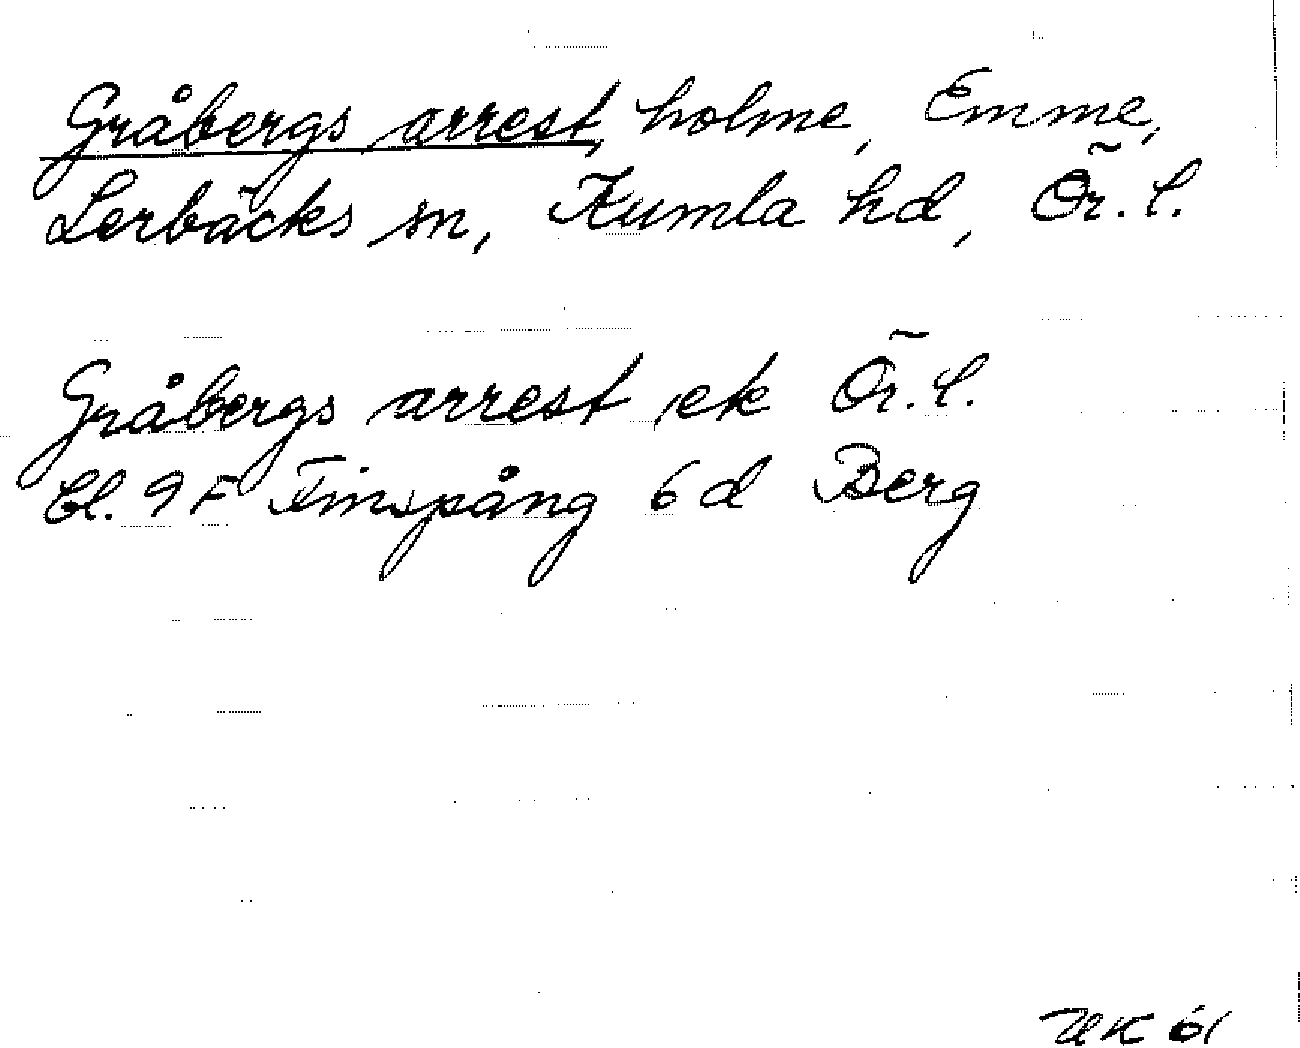 Gråbergs arrest, holme, Emme,
Lerbäcks sn, Kumla hd, Ör. l.
Gråbergs arrest ek Ör. l.
bl. 9F Finspång 6d Berg
UK 61